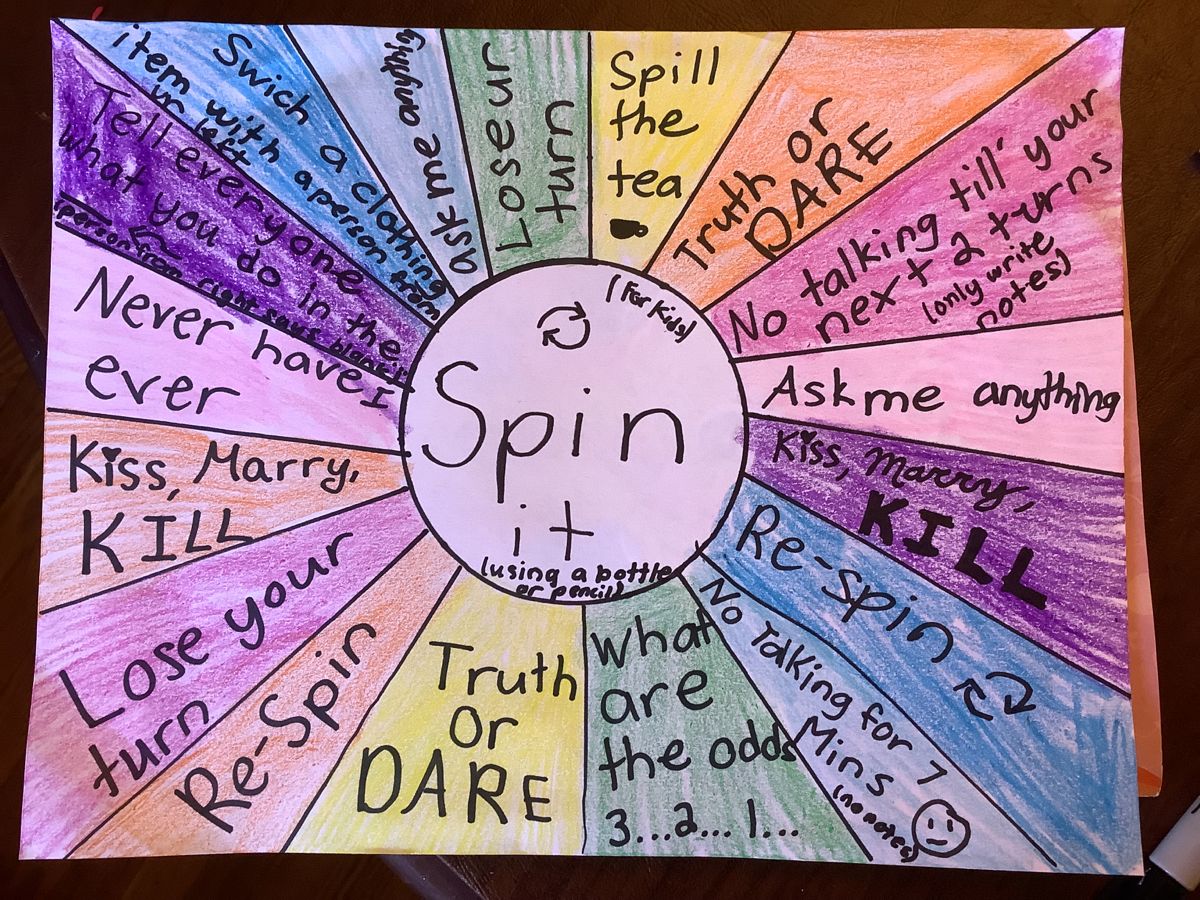 Spin
it
(For Kids)
(using a bottle
or pencil)
Spill
the
tea
Truth or
DARE
No talking till' your
next 2 turns
(only write
notes)
Ask me anything
Kiss, Marry,
KILL
Re-spin
No Talking for 7
Mins
(no notes)
What
are
the odds
3...2... 1...
Truth
or
DARE
Re-Spin
Lose your
turn
Kiss, Marry,
KILL
Never have I
ever
Tell everyone
what you do in the
(person from right says blank)
Swich a clothing
item with a person from
ur left
ask me anything
Lose ur
turn